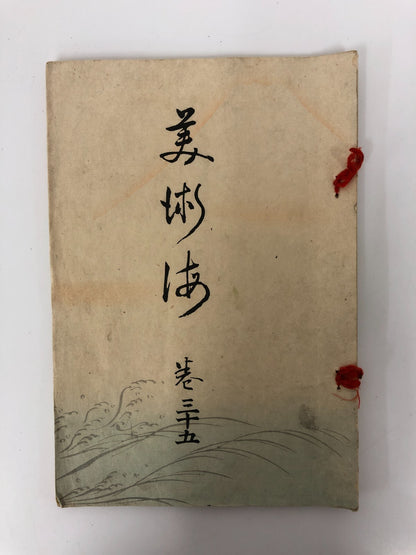 美術海
巻三十五